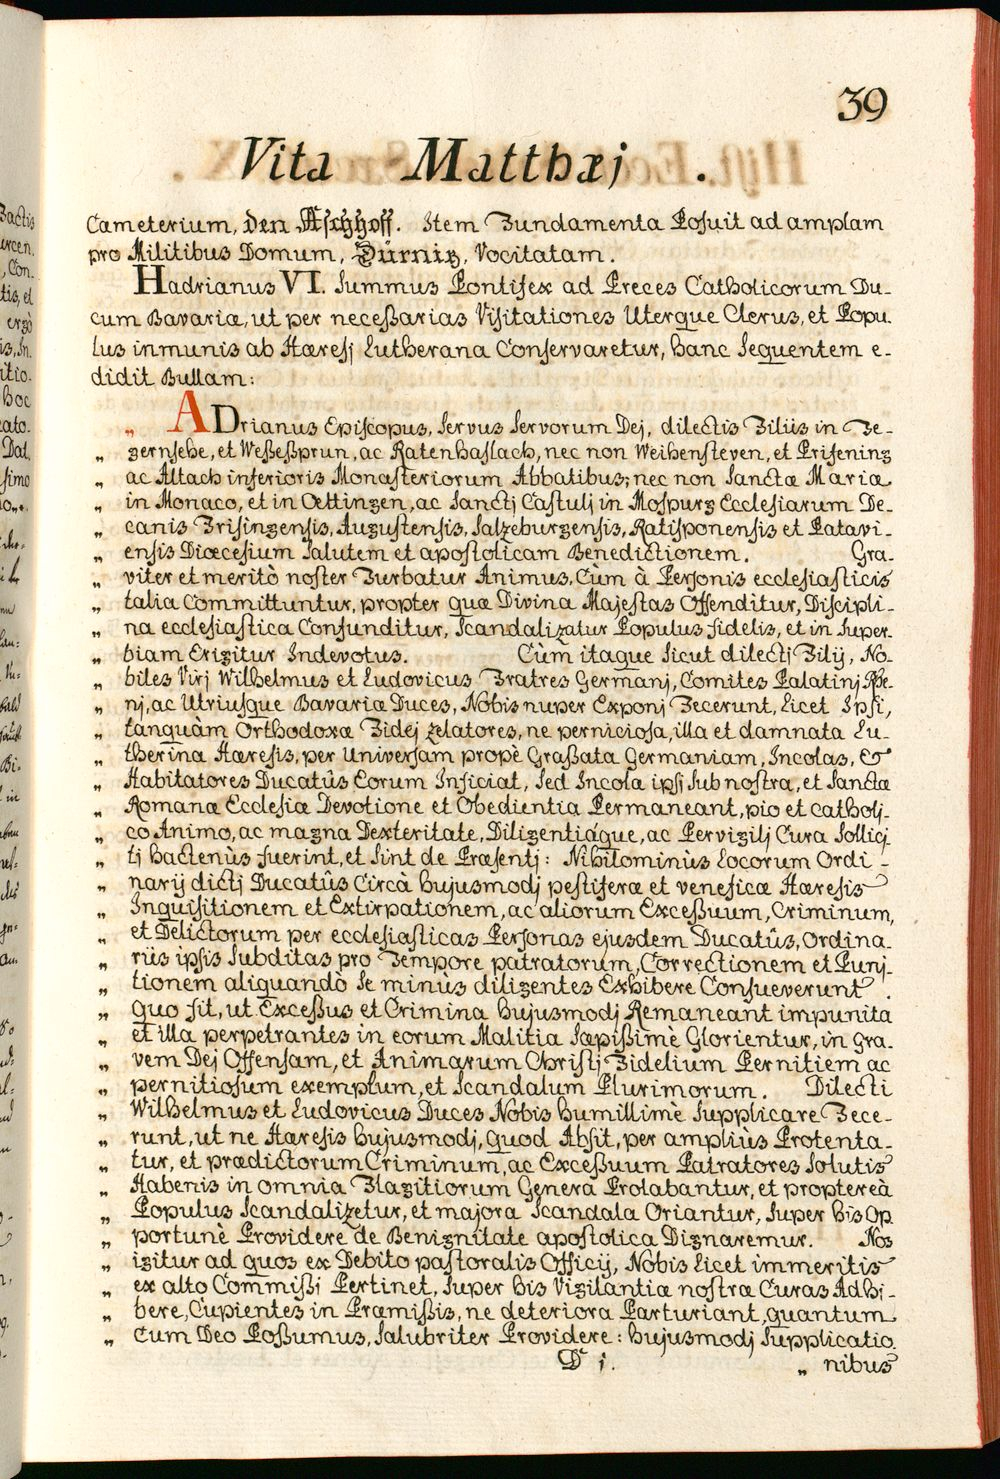 39
Vita Matthæj .
Cæmeterium, den Aschhoff. Item Fundamenta Posuit ad amplam
pro Militibus Domum, Dürniz, Vocitatam.
Hadrianus VI. Summus Pontifex ad Preces Catholicorum Du-
cum Bavariæ, ut per necessarias Visitationes Uterque Clerus, et Popu.
lus inmunis ab Hæresj Lutherana Conservaretur, hanc Sequentem e-
didit Bullam:
„ ADrianus Episcopus, Servus Servorum Dej, dilectis Filiis in Te-
„ gernsehe, et Wessessprun, ac Ratenhaslach, nec non Weihensteven, et Prifening
„ ac Altach inferioris Monasteriorum Abbatibus; nec non Sanctæ Mariæ
„ in Monaco, et in Oettingen, ac Sanctj Castulj in Mospurg Ecclesiarum De-
„ canis Frisingensis, Augustensis, Salzeburgensis, Ratisponensis et Patavi-
„ ensis Diœcesium Salutem et apostolicam Benedictionem. Gra-
„ viter et meritò noster Turbatur Animus, Cùm à Personis ecclesiasticis
„ talia Committuntur, propter quæ Divina Majestas Offenditur, Discipli-
„ na ecclesiastica Confunditur, Scandalizatur Populus fidelis, et in Super-
„ biam Erigitur Indevotus. Cùm itaque Sicut dilectj Filij, No-
„ biles Virj Wilhelmus et Ludovicus Fratres Germanj, Comites Palatinj Rhe-
„ nj, ac Utriusque Bavariæ Duces, Nobis nuper Exponj Fecerunt, Licet Ipsi,
„ tanquàm Orthodoxæ Fidej zelatores, ne perniciosa, illa et damnata Lu-
„ therina Hæresis, per Universam propè Grassata Germaniam, Incolas, &
„ Habitatores Ducatûs Eorum Inficiat, Sed Incolæ ipsi Sub nostra, et Sanctæ
„ Romanæ Ecclesiæ Devotione et Obedientia Permaneant, pio et catholi-
„ co Animo, ac magna Dexteritate, Diligentiáque, ac Pervigilj Cura Sollicj
„ tj hactenùs fuerint, et Sint de Præsentj: Nihilominùs Locorum Ordi-
„ narij dictj Ducatûs Circà hujusmodj pestiferæ et veneficæ Hæresis
„ Inquisitionem et Extirpationem, ac aliorum Excessuum, Criminum,
„ et Delictorum per ecclesiasticas Personas ejusdem Ducatûs, Ordina-
„ riis ipsis Subditas pro Tempore patratorum, Correctionem et Punj-
„ tionem aliquandò Se minus diligentes Exhibere Consueverunt.
„ Quo fit, ut Excessus et Crimina hujusmodj Remaneant impunita
„ et illa perpetrantes in eorum Malitia Sæpissimè Glorientur, in Gra-
„ vem Dej Offensam, et Animarum Christj Fidelium Pernitiem ac
„ pernitiosum exemplum, et Scandalum Plurimorum. Dilecti
„ Wilhelmus et Ludovicus Duces Nobis humillimè Supplicare Fece-
„ runt, ut ne Hæresis hujusmodj, quod Absit, per ampliùs Protenta-
„ tur, et prædictorum Criminum, ac Excessuum Patratores Solutis
„ Habenis in omnia Flagitiorum Genera Prolabantur, et proptereà
„ Populus Scandalizetur, et majora Scandala Oriantur, Super his Op
„ portunè Providere de Benignitate apostolica Dignaremur. Nos
„ igitur ad quos ex Debito pastoralis Officij, Nobis Licet immeritis
„ ex alto Commissi Pertinet, Super his Vigilantiæ nostræ Curas Adhi-
„ bere, Cupientes in Præmissis, ne deteriora Parturiant, quantum
„ Cum Deo Possumus, Salubriter Providere: hujusmodj Supplicatio.
D i.
„ nibus